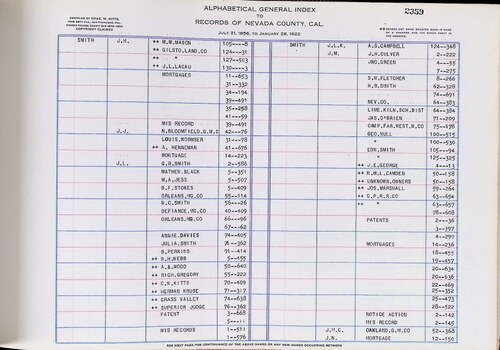 ALPHABETICAL GENERAL INDEX
TO
RECORDS OF NEVADA COUNTY, CAL.
JULY 21, 1856, TO JANUARY 28, 1922
COPYRIGHT CLAIMED
2359
SMITH J.H. ++ W.M.MASON 105---8
++ GILSTO.LAND.CO 124--31
++ " 127--503
++ J.L.LACAU 130---3
MORTGAGES 11--653
31--332
34--194
39--491
35--258
41--59
HIS RECORD 39--491
J.J. N.BLOOMFIELD.G.M.C 42--76
LOUIS.KORNSER 31--78
++ A. HENNEMAN 41--676
MORTGAGE 14--223
J.L. G.B.SMITH 2--586
MATHEW.BLACK 5--351
W.A.JESS 5--507
B.F.STOKES 5--409
ORLEANS.VG.CO 55--114
W.C.SMITH 56--26
DEFIANCE.VG.CO 40--509
ORLEANS.VG.CO 66--96
67--62
ANGIE.DAVIES 74--405
JULIA.SMITH 76--362
B.PERKINS 91--414
++ W.H.WEBB 5--455
++ A.G.WOOD 50--640
++ RICH.GREGORY 55--222
++ C.N.KITTS 70--409
++ HERMAN KRUSE 71--317
++ GRASS VALLEY 74--638
++ SUPERIOR JUDGE 76--362
PATENT 3--668
5---11
HIS RECORDS 1--511
1--576
SMITH J.L.R. A.G.CAMPBELL 124--348
J.M. J.H.CULVER 2--222
JNO.GREEN 4--55
7--275
S.R.FLETCHER 8--266
H.B.SMITH 62--328
74--691
NEV.CO. 64--383
LIME.KILN.SCH.DIST 64--384
JAS.O'BRIEN 71--209
CAMP.FAR.WEST.M.CO 75--178
GEO.NULL 100--515
" 100--530
EDW.SMITH 105--94
" 125--325
++ J.E.GEORGE 4--13
++ R.W.L.CAMDEN 50--158
++ UNKNOWN.OWNERS 50--158
++ JOS.MARSHALL 59--264
++ C.P.R.R.CO 63--654
++ " 63--657
78--608
PATENTS 2--36
3--397
4--299
MORTGAGES 14--236
18--455
19--457
20--634
20--636
22--469
25--352
25--473
28--522
NOTICE ACTION 2--142
HIS RECORD 2--145
J.M.C. OAKLAND.G.M.CO 52--366
J.N. MORTGAGE 12--150
SEE NEXT PAGE FOR CONTINUANCE OF THE ABOVE NAMES OR ANY NEW NAMES OCCURRING BETWEEN